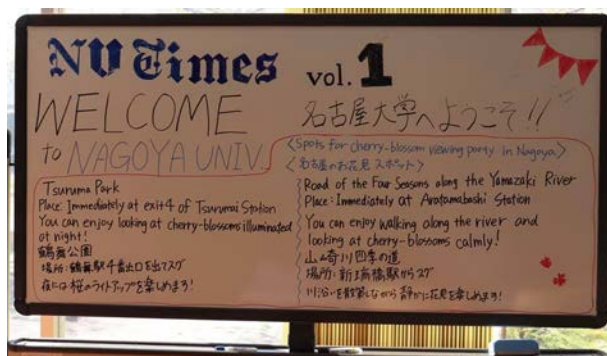 NU Times vol. 1
WELCOME
to NAGOYA UNIV.
名古屋大学へようこそ!!
<Spots for cherry-blossom viewing party in Nagoya>
<名古屋のお花見スポット>
Tsuruma Park
Place: Immediately at exit 4 of Tsurumai Station
You can enjoy looking at cherry-blossoms illuminated
at night!
鶴舞公園
場所:鶴舞駅4番出口を出てスグ
夜には桜のライトアップを楽しめます!
Road of the Four Seasons along the Yamazaki River
Place: Immediately at Aratamabashi Station
You can enjoy walking along the river and
looking at cherry-blossoms calmly!
山崎川四季の道
場所:新瑞橋駅からスグ
川沿いを散策しながら静かに花見を楽しめます!